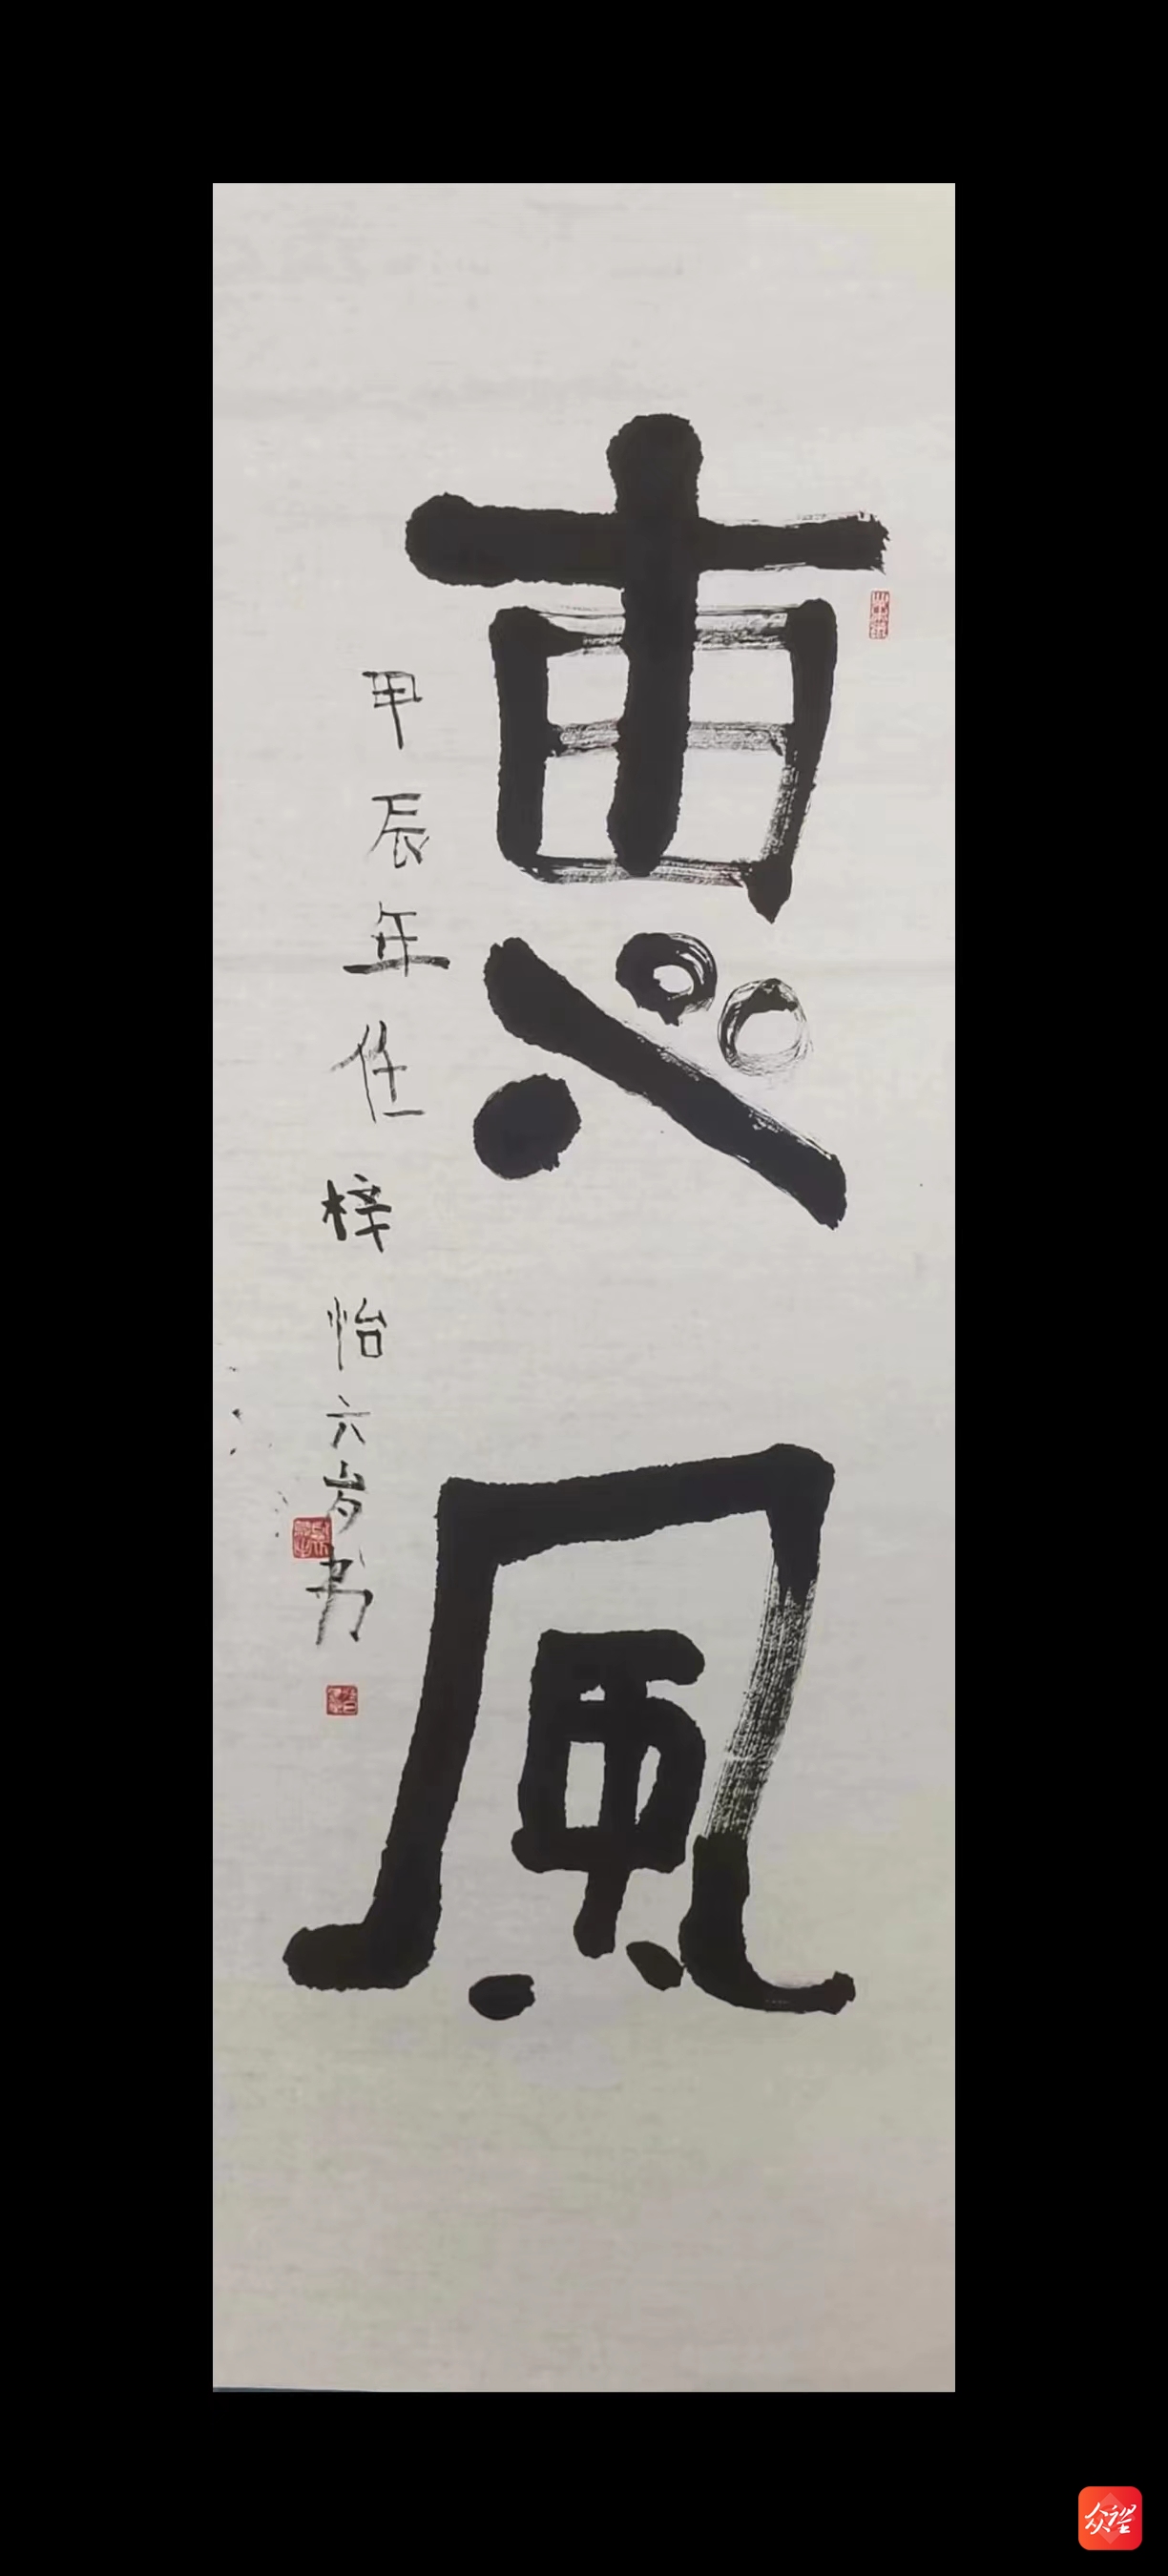 惠風
甲辰年任梓怡六岁书
众望